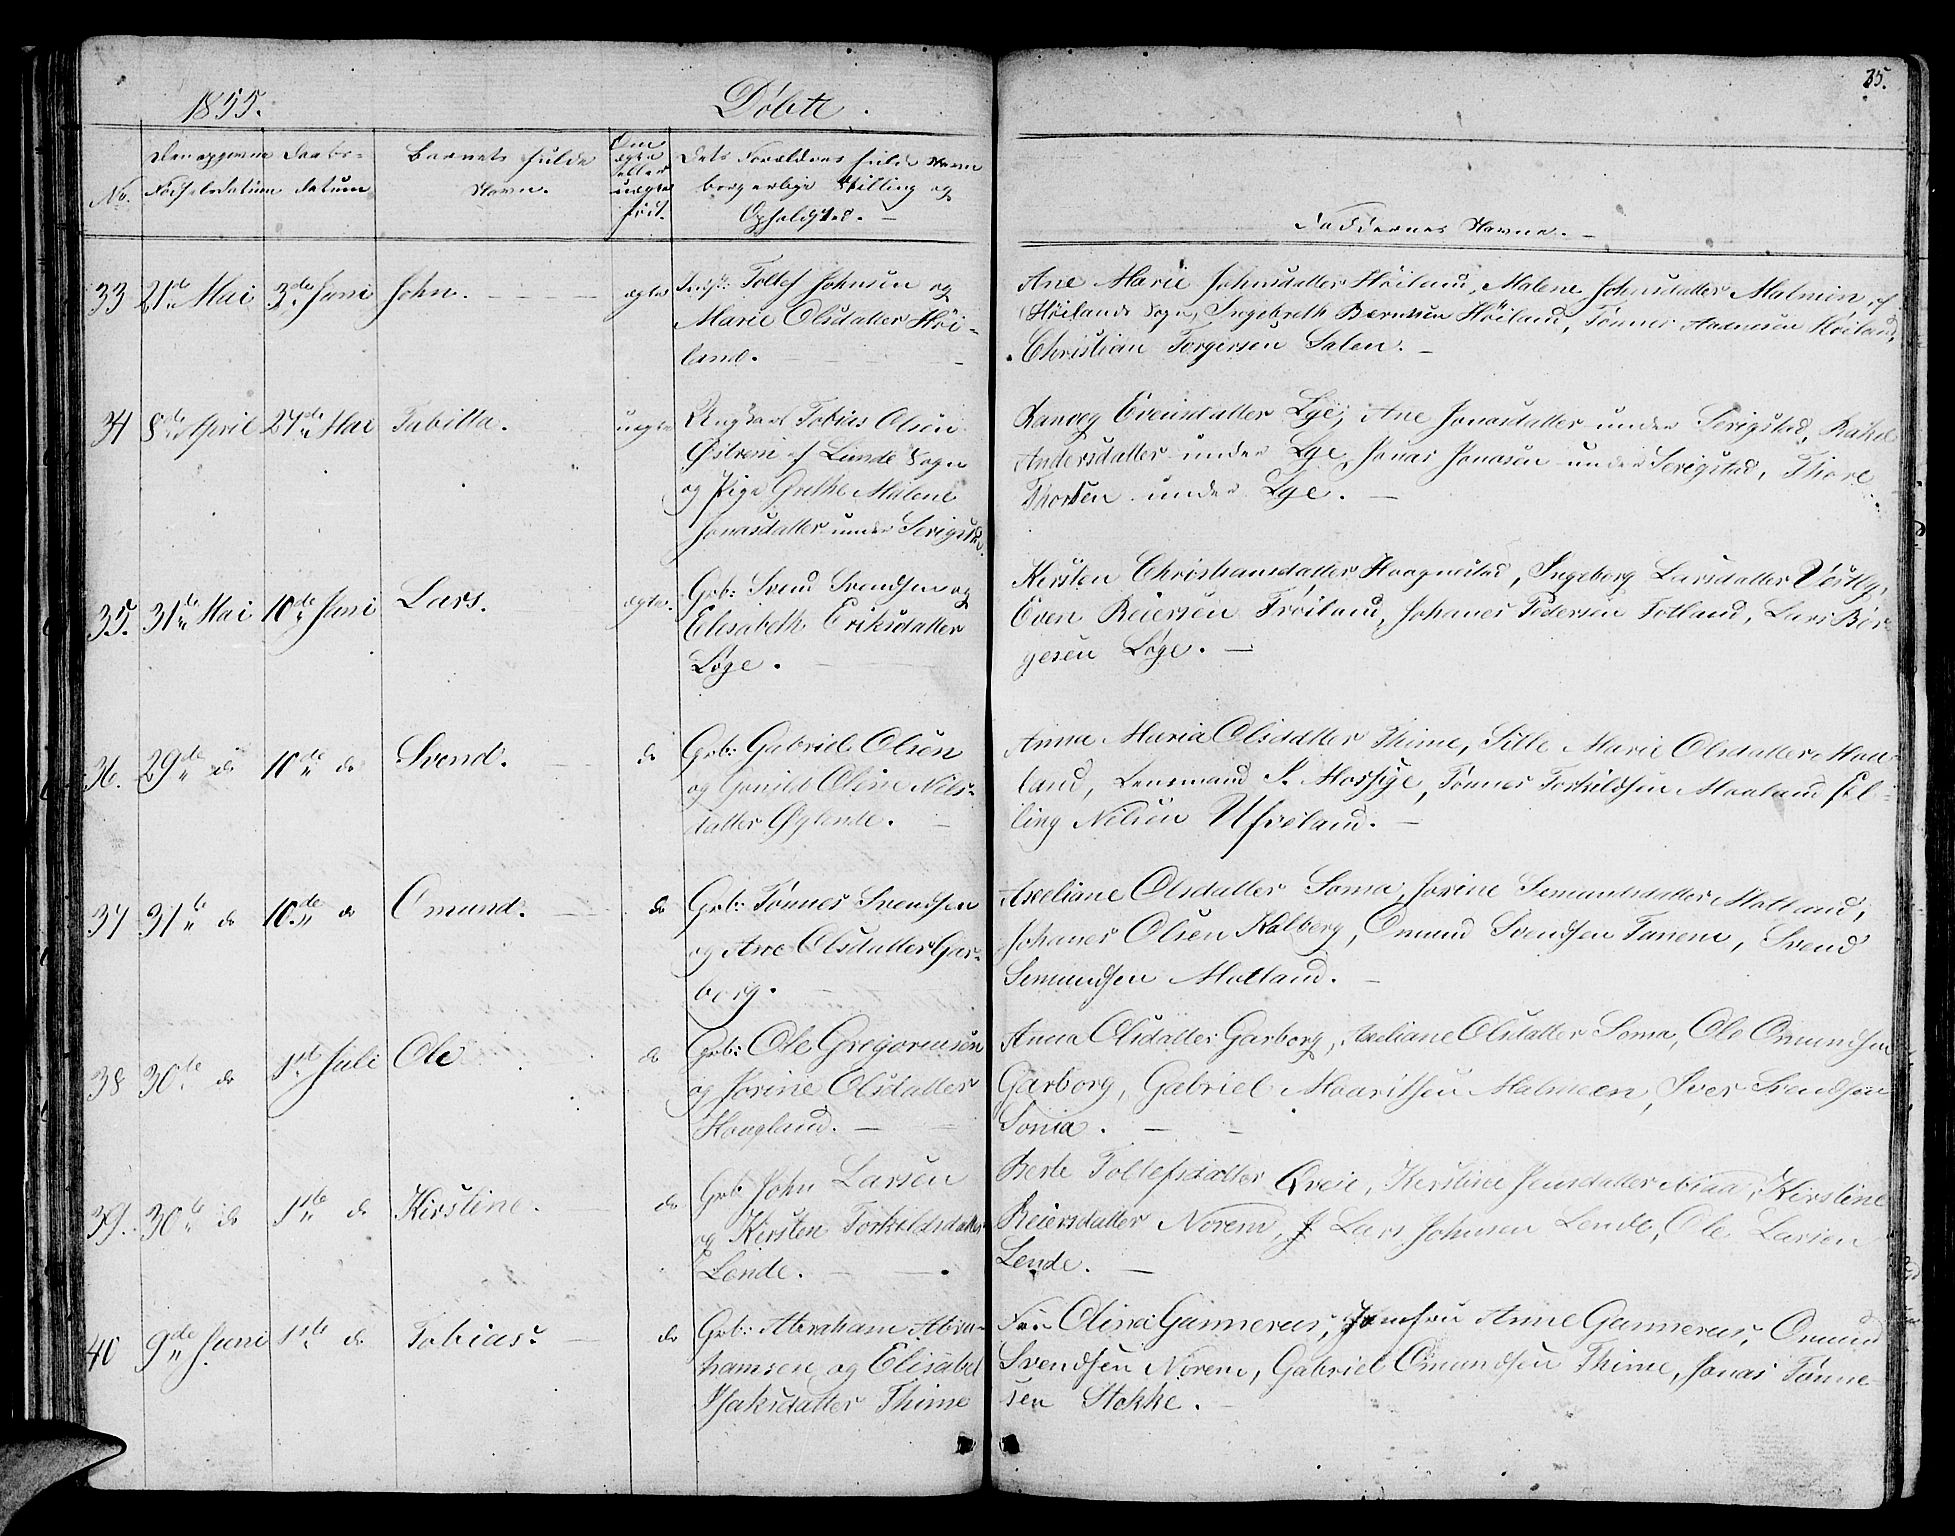 1855.
Døbte.
35.
No.
Den opgivne Fødselsdatum
Daabs-datum
Barnets fulde Navn.
Om ægte eller uægte fød.
Dets Forældres fulde Navn
borgerlige Stilling og
Opholdsted. —
Faddernes Navne. —
33 21de Mai 3die Juni John. ægte Tollef Johnsen og
Marie Olsdatter Høi-
land.
Ane Marie Johnsdatter Høiland, Malene Johnsdatter Malmin af
Høilands Sogn, Ingebreth Berntsen Høiland, Tønnes Aadnesen Høiland,
Christian Torgersen Salen. —
34 8de April 27de Mai Tabitta. uægte Ungkarl Tobias Olsen
Østrem af Lunde Sogn
og Pige Grethe Malene
Jonasdatter under Serigstad.
Ranveg Evensdatter Lye, Ane Jonasdatter under Serigstad, Rakel
Andersdatter under Lye, Jonas Jonasen under Serigstad, Thore
Thorsen under Lye. —
35. 31te Mai 10de Juni Lars. ægte. Grb: Svend Svendsen og
Elisabeth Eriksdatter
Løge.
Kirsten Christiansdatter Haagnestad, Ingeborg Larsdatter Vestly,
Even Reiersen Frøiland, Johanes Pedersen Totland, Lars Bør-
gesen Løge. —
36. 29de do 10de do Svend. do Grb: Gabriel Olsen
og Gunild Oline Nils-
datter Øglende. —
Anna Maria Olsdatter Thime, Sille Marie Olsdatter Maa-
land, Lensmand S. Mossige, Tønnes Torkildsen Maaland El-
ling Nilsen Ufreland. —
37 31te do 10de do Omund. do Grb: Tønnes Svendsen
og Ane Olsdatter Gar-
borg. —
Axeliane Olsdatter Soma, Jorine Semundsdatter Motland,
Johanes Olsen Kalberg, Omund Svendsen Tanem, Svend
Semundsen Motland. —
38 30te do 1ste Juli Ole do Grb: Ole Gregoriusen
og Jorine Olsdatter
Haagland. —
Anna Olsdatter Garborg, Axeliane Olsdatter Soma, Ole Omundsen
Garborg, Gabriel Mauritsen Malmeen, Iver Svendsen
Soma. —
39. 30te do 1ste do Kirstine. do Grb John Larsen
og Kirsten Torkildsdatter
Lende. —
Berte Tollefsdatter Qveie, Kirstine Jensdatter Niaa, Kirstine
Reiersdatter Norem, Lars Johnsen Lende, Ole Larsen
Lende. —
40 9de Juni 1ste do Tobias. do Grb: Abraham Abra-
hamsen og Elisabet
Isaksdatter Thime
Fru Olina Gannerus, Jomfru Anne Gannerus, Omund
Svendsen Norem, Gabriel Omundsen Thime, Jonas Tønne-
sen Stokke. —